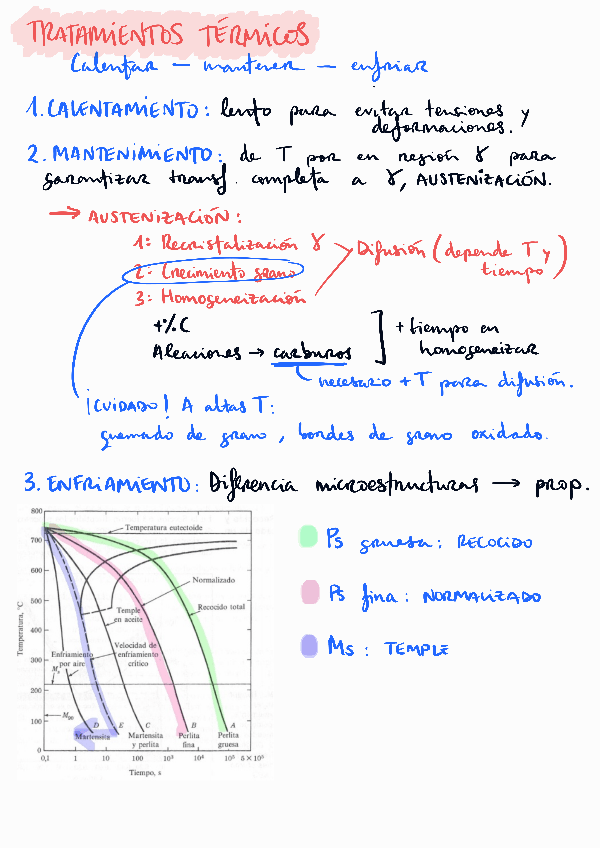 TRATAMIENTOS TÉRMICOS
Calentar — mantener — enfriar
1. CALENTAMIENTO: lento para evitar tensiones y
deformaciones.
2. MANTENIMIENTO: de T por en región γ para
garantizar transf. completa a γ, AUSTENIZACIÓN.
→ AUSTENIZACIÓN:
1: Recristalización γ
2: Crecimiento grano
3: Homogeneización
Difusión (depende T y
tiempo)
+%C
Aleaciones → carburos
+ tiempo en
homogeneizar
necesario + T para difusión.
¡CUIDADO! A altas T:
quemado de grano, bordes de grano oxidado.
3. ENFRIAMIENTO: Diferencia microestructuras → prop.
Ps gruesa: RECOCIDO
Ps fina: NORMALIZADO
Ms: TEMPLE
Temperatura, °C
800
700
600
500
400
300
200
100
0
Temperatura eutectoide
Normalizado
Recocido total
Temple
en aceite
Velocidad de
enfriamiento
crítico
Enfriamiento
por aire
Ms
M90
D E C B A
Martensita
Martensita
y perlita
Perlita
fina
Perlita
gruesa
0,1 1 10 100 10³ 10⁴ 10⁵ 5 × 10⁵
Tiempo, s